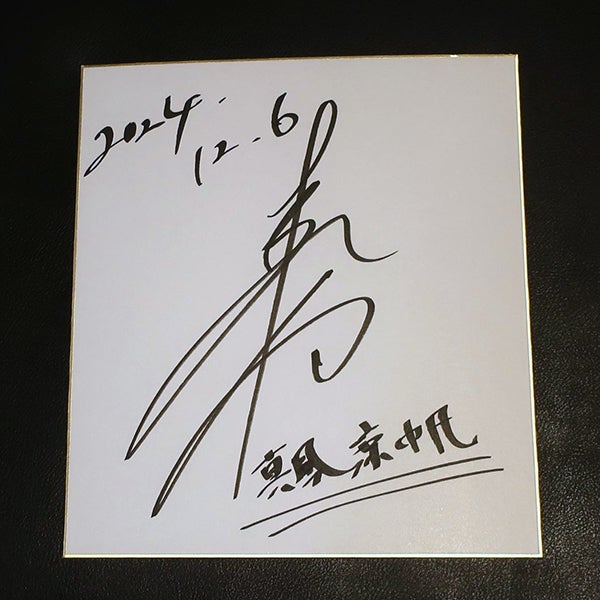 2024.
12.6
真風涼帆